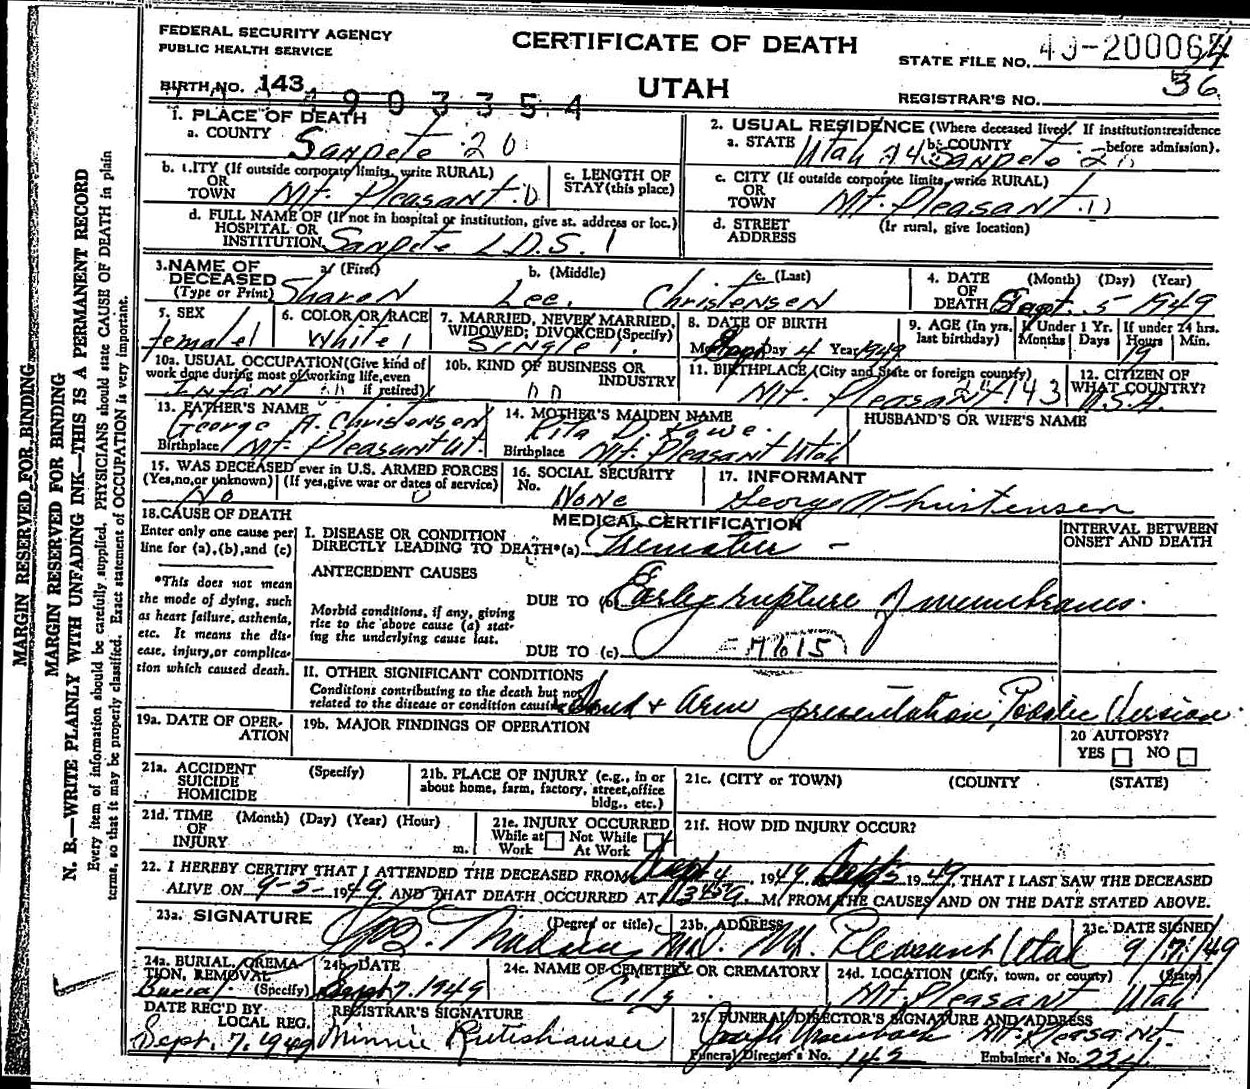 FEDERAL SECURITY AGENCY
PUBLIC HEALTH SERVICE
CERTIFICATE OF DEATH
UTAH
STATE FILE NO. 49-2000674
REGISTRAR'S NO. 36
BIRTH NO. 143
1903354
1. PLACE OF DEATH
a. COUNTY Sanpete 20
2. USUAL RESIDENCE (Where deceased lived. If institution:residence before admission).
a. STATE Utah b. COUNTY Sanpete
b. CITY (If outside corporate limits, write RURAL) OR TOWN Mt. Pleasant
c. LENGTH OF STAY (this place)
c. CITY (If outside corporate limits, write RURAL) OR TOWN Mt. Pleasant
d. FULL NAME OF (If not in hospital or institution, give st. address or loc.) HOSPITAL OR INSTITUTION Sanpete L.D.S. 1
d. STREET ADDRESS (If rural, give location)
3. NAME OF DECEASED (Type or Print)
a. (First) Sharon b. (Middle) Lee. c. (Last) Christensen
4. DATE OF DEATH (Month) (Day) (Year) Sept. 5 1949
5. SEX female 1
6. COLOR OR RACE White 1
7. MARRIED, NEVER MARRIED, WIDOWED; DIVORCED (Specify) Single 1.
8. DATE OF BIRTH Mo. Sept Day 4 Year 1949
9. AGE (In yrs. last birthday) If Under 1 Yr. Months Days If under 24 hrs. Hours 19 Min.
10a. USUAL OCCUPATION (Give kind of work done during most of working life, even if retired) Infant
10b. KIND OF BUSINESS OR INDUSTRY
11. BIRTHPLACE (City and State or foreign country) Mt. Pleasant 143
12. CITIZEN OF WHAT COUNTRY? U.S.A.
13. FATHER'S NAME George A. Christensen
Birthplace Mt. Pleasant Ut.
14. MOTHER'S MAIDEN NAME Rita D. Rowe.
Birthplace Mt. Pleasant Utah
HUSBAND'S OR WIFE'S NAME
15. WAS DECEASED ever in U.S. ARMED FORCES (Yes, no, or unknown) (If yes, give war or dates of service) No
16. SOCIAL SECURITY No. None
17. INFORMANT George A Christensen
18. CAUSE OF DEATH
Enter only one cause per line for (a), (b), and (c)
*This does not mean the mode of dying, such as heart failure, asthenia, etc. It means the disease, injury, or complication which caused death.
MEDICAL CERTIFICATION
INTERVAL BETWEEN ONSET AND DEATH
I. DISEASE OR CONDITION DIRECTLY LEADING TO DEATH*(a)
ANTECEDENT CAUSES
Morbid conditions, if any, giving rise to the above cause (a) stating the underlying cause last.
DUE TO (b) Early rupture of membranes.
DUE TO (c) 7615
II. OTHER SIGNIFICANT CONDITIONS
Conditions contributing to the death but not related to the disease or condition causing Hand & Arm presentation, Podalic Version.
19a. DATE OF OPERATION
19b. MAJOR FINDINGS OF OPERATION
20 AUTOPSY? YES NO
21a. ACCIDENT SUICIDE HOMICIDE (Specify)
21b. PLACE OF INJURY (e.g., in or about home, farm, factory, street, office bldg., etc.)
21c. (CITY or TOWN) (COUNTY) (STATE)
21d. TIME OF INJURY (Month) (Day) (Year) (Hour) m.
21e. INJURY OCCURRED While at Work Not While At Work
21f. HOW DID INJURY OCCUR?
22. I HEREBY CERTIFY THAT I ATTENDED THE DECEASED FROM Sept 4, 1949 Sept 5 1949, THAT I LAST SAW THE DECEASED
ALIVE ON 9-5-1949, AND THAT DEATH OCCURRED AT M. FROM THE CAUSES AND ON THE DATE STATED ABOVE.
23a. SIGNATURE (Degree or title) Madsen M.D.
23b. ADDRESS Mt. Pleasant Utah
23c. DATE SIGNED 9/7/49
24a. BURIAL, CREMATION, REMOVAL (Specify) Burial
24b. DATE Sept 7. 1949
24c. NAME OF CEMETERY OR CREMATORY City
24d. LOCATION (City, town, or county) (State) Mt Pleasant Utah
DATE REC'D BY LOCAL REG. Sept. 7, 1949
REGISTRAR'S SIGNATURE Minnie Rutishauser
25. FUNERAL DIRECTOR'S SIGNATURE AND ADDRESS Mt. Pleasant.
Funeral Director's No. 142 Embalmer's No. 224
MARGIN RESERVED FOR BINDING
MARGIN RESERVED FOR BINDING
N. B.—WRITE PLAINLY WITH UNFADING INK—THIS IS A PERMANENT RECORD
Every item of information should be carefully supplied. PHYSICIANS should state CAUSE OF DEATH in plain
terms, so that it may be properly classified. Exact statement of OCCUPATION is very important.